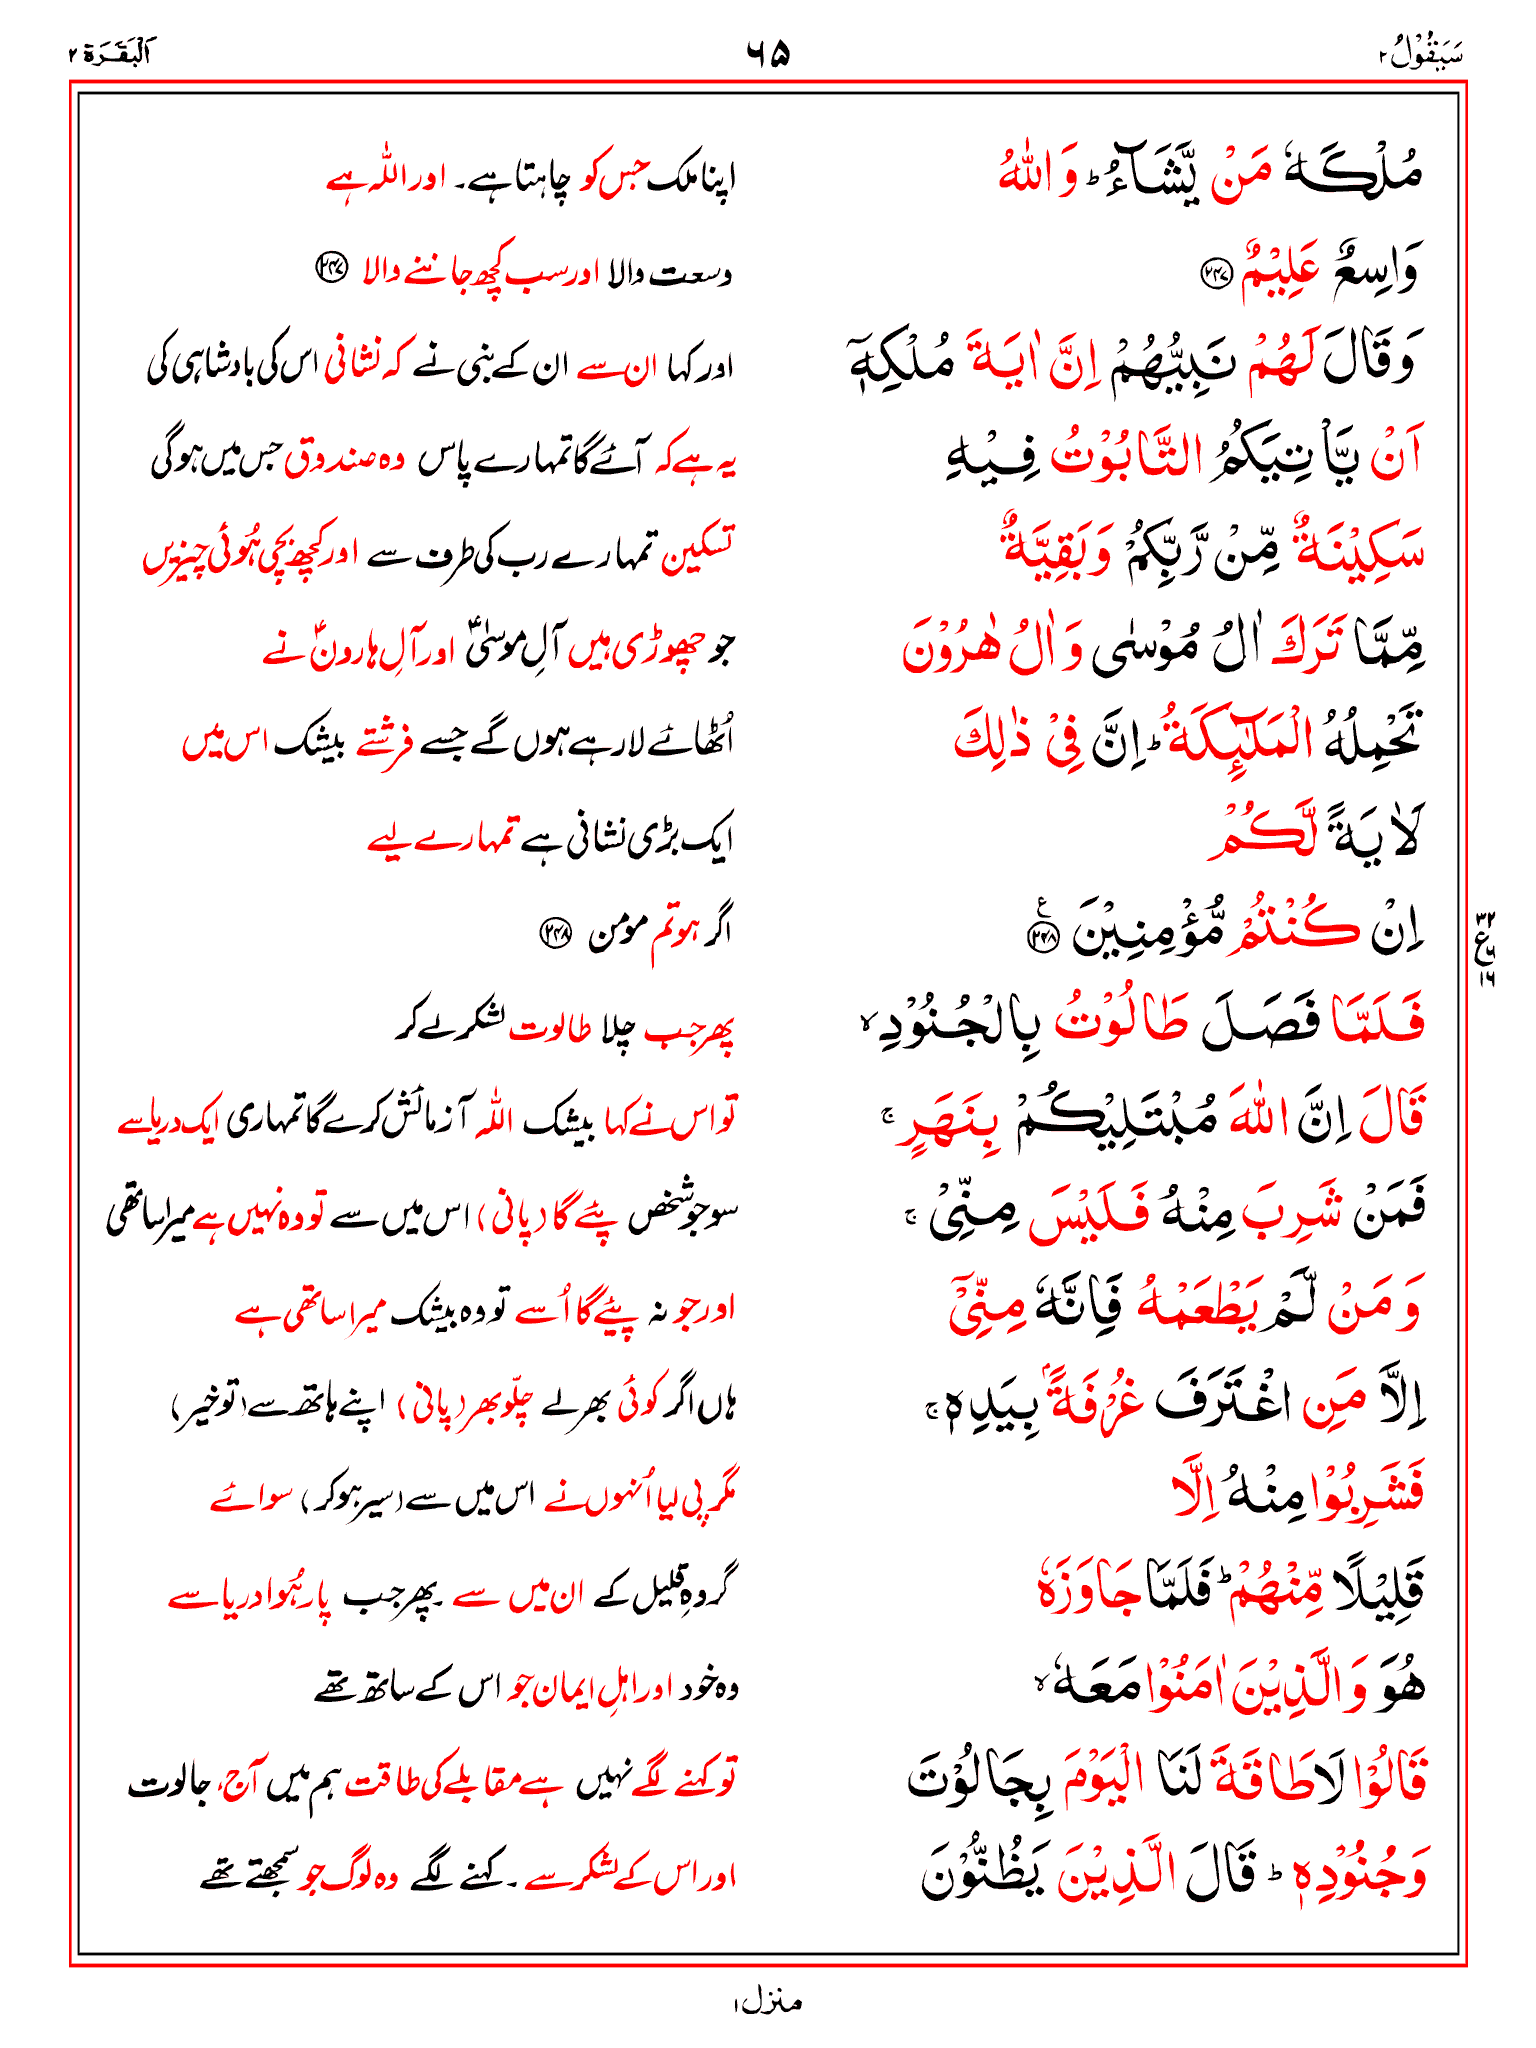 سَيَقُوْلُ ۲
۶۵
اَلْبَقَرَة ۲
مُلْكَهٗ مَنْ يَّشَآءُ ؕ وَ اللّٰهُ
اپنا ملک جس کو چاہتا ہے۔ اور اللہ ہے
وَاسِعٌ عَلِيْمٌ ﴿۲۴۷﴾
وسعت والا اور سب کچھ جاننے والا ﴿۲۴۷﴾
وَقَالَ لَهُمْ نَبِيُّهُمْ اِنَّ اٰيَةَ مُلْكِهٖۤ
اور کہا ان سے ان کے نبی نے کہ نشانی اس کی بادشاہی کی
اَنْ يَّاْتِيَكُمُ التَّابُوْتُ فِيْهِ
یہ ہے کہ آئے گا تمہارے پاس وہ صندوق جس میں ہوگی
سَكِيْنَةٌ مِّنْ رَّبِّكُمْ وَبَقِيَّةٌ
تسکین تمہارے رب کی طرف سے اور کچھ بچی ہُوئی چیزیں
مِّمَّا تَرَكَ اٰلُ مُوْسٰى وَ اٰلُ هٰرُوْنَ
جو چھوڑی ہیں آلِ موسیٰؑ اور آلِ ہارونؑ نے
تَحْمِلُهُ الْمَلٰٓئِكَةُ ؕ اِنَّ فِيْ ذٰلِكَ
اُٹھائے لارہے ہوں گے جسے فرشتے بیشک اس میں
لَاٰيَةً لَّكُمْ
ایک بڑی نشانی ہے تمہارے لیے
اِنْ كُنْتُمْ مُّؤْمِنِيْنَ ﴿۲۴۸﴾ ع
اگر ہو تم مومن ﴿۲۴۸﴾
۳۲
ع ۶
۱۶
فَلَمَّا فَصَلَ طَالُوْتُ بِالْجُنُوْدِ ۙ
پھر جب چلا طالوت لشکر لے کر
قَالَ اِنَّ اللّٰهَ مُبْتَلِيْكُمْ بِنَهَرٍ ۚ
تو اس نے کہا بیشک اللہ آزمائش کرے گا تمہاری ایک دریا سے
فَمَنْ شَرِبَ مِنْهُ فَلَيْسَ مِنِّيْ ۚ
سو جو شخص پئے گا (پانی) اس میں سے تو وہ نہیں ہے میرا ساتھی
وَ مَنْ لَّمْ يَطْعَمْهُ فَاِنَّهٗ مِنِّيْۤ
اور جو نہ پیئے گا اُسے تو وہ بیشک میرا ساتھی ہے
اِلَّا مَنِ اغْتَرَفَ غُرْفَةًۢ بِيَدِهٖ ۚ
ہاں اگر کوئی بھر لے چلّو بھر (پانی) اپنے ہاتھ سے (تو خیر)
فَشَرِبُوْا مِنْهُ اِلَّا
مگر پی لیا اُنہوں نے اس میں سے (سیر ہوکر) سوائے
قَلِيْلًا مِّنْهُمْ ؕ فَلَمَّا جَاوَزَهٗ
گروہِ قلیل کے ان میں سے ۔ پھر جب پار ہُوا دریا سے
هُوَ وَالَّذِيْنَ اٰمَنُوْا مَعَهٗ ۙ
وہ خود اور اہلِ ایمان جو اس کے ساتھ تھے
قَالُوْا لَا طَاقَةَ لَنَا الْيَوْمَ بِجَالُوْتَ
تو کہنے لگے نہیں ہے مقابلے کی طاقت ہم میں آج، جالوت
وَجُنُوْدِهٖ ؕ قَالَ الَّذِيْنَ يَظُنُّوْنَ
اور اس کے لشکر سے ۔ کہنے لگے وہ لوگ جو سمجھتے تھے
منزل ۱